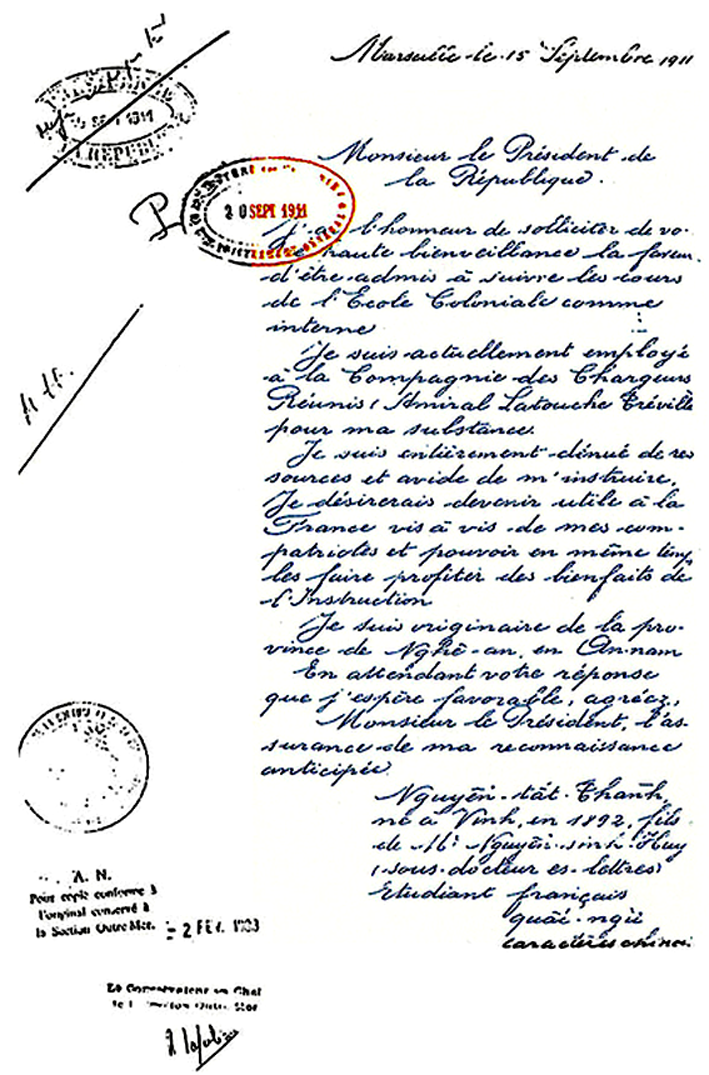 Marseille le 15 Septembre 1911
Monsieur le Président de
la République.
20 SEPT 1911
SEPT 1911
J'ai l'honneur de solliciter de vo-
haute bienveillance la faveur
d'être admis à suivre les cours
de l'Ecole Coloniale comme
interne
Je suis actuellement employé
à la Compagnie des Chargeurs
Réunis (Amiral Latouche Tréville
pour ma substance.
Je suis entièrement dénué de res
sources et avide de m'instruire.
Je désirerais devenir utile à la
France vis à vis de mes com-
patriotes et pouvoir en même temps
les faire profiter des bienfaits de
l'Instruction
Je suis originaire de la pro-
vince de Nghê-an, en An-nam
En attendant votre réponse
que j'espère favorable, agréez,
Monsieur le Président, l'as-
surance de ma reconnaissance
anticipée.
Nguyễn-tât-Thành,
né à Vinh, en 1892, fils
de Mr Nguyễn-sinh-Huy
(sous-docteur ès-lettres)
Etudiant français
quâc-ngũ
caractères chinoi
A. N.
Pour copie conforme à
l'original conservé à
la Section Outre Mer.
- 2 FEV.
Le Conservateur en Chef